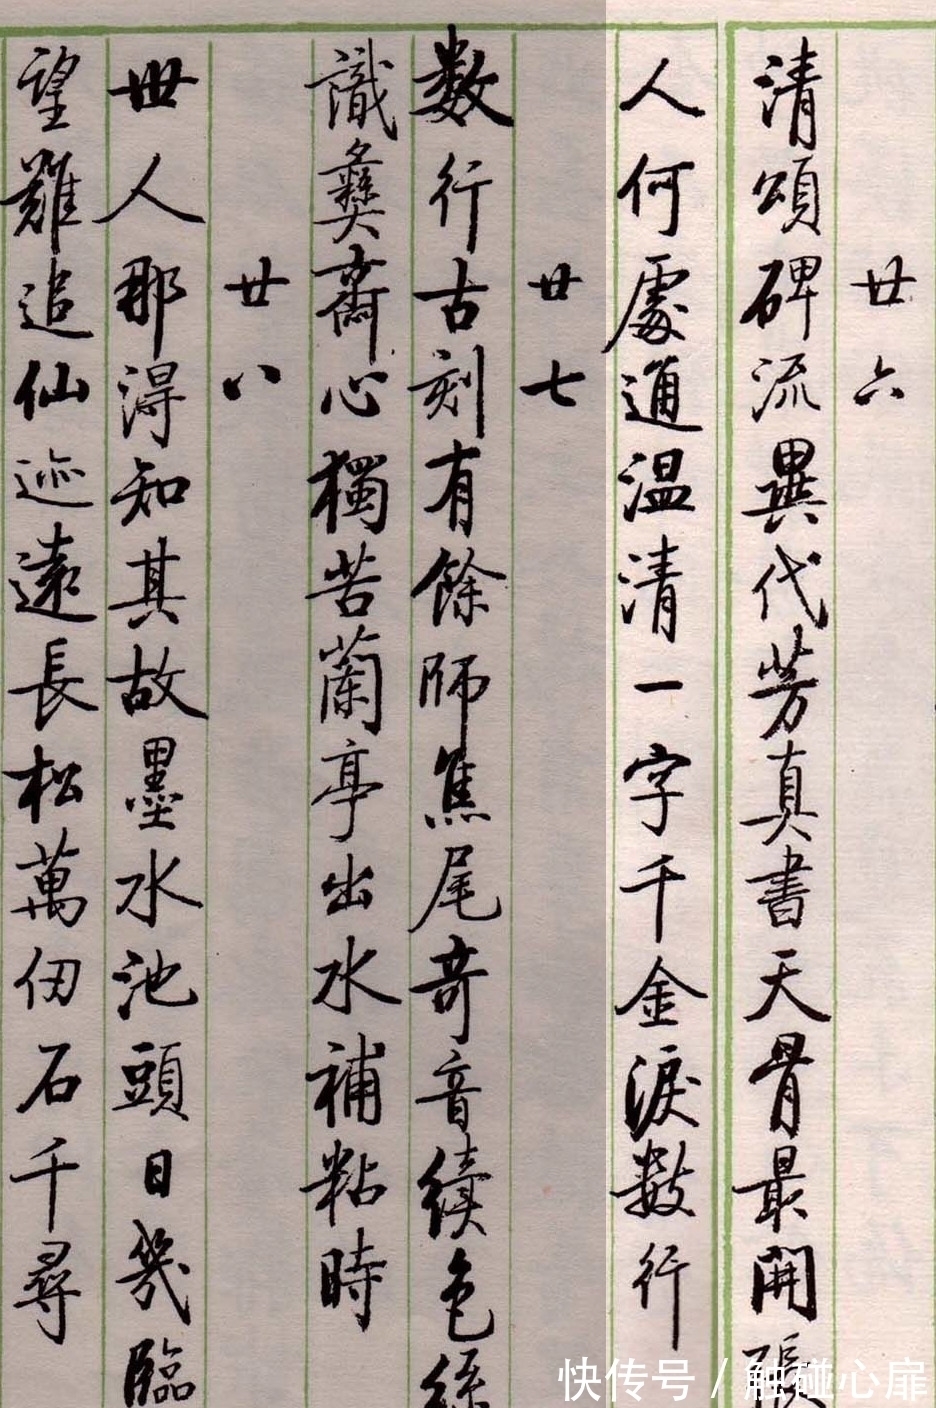 廿六
清頌碑流異代芳真書天骨最開張
人何處通温清一字千金淚數行
廿七
数行古刻有餘師焦尾奇音續色絲
識彝齋心獨苦蘭亭出水補粘時
廿八
世人那得知其故墨水池頭日幾臨
望難追仙迹遠長松萬仞石千尋
快传号/触碰心扉